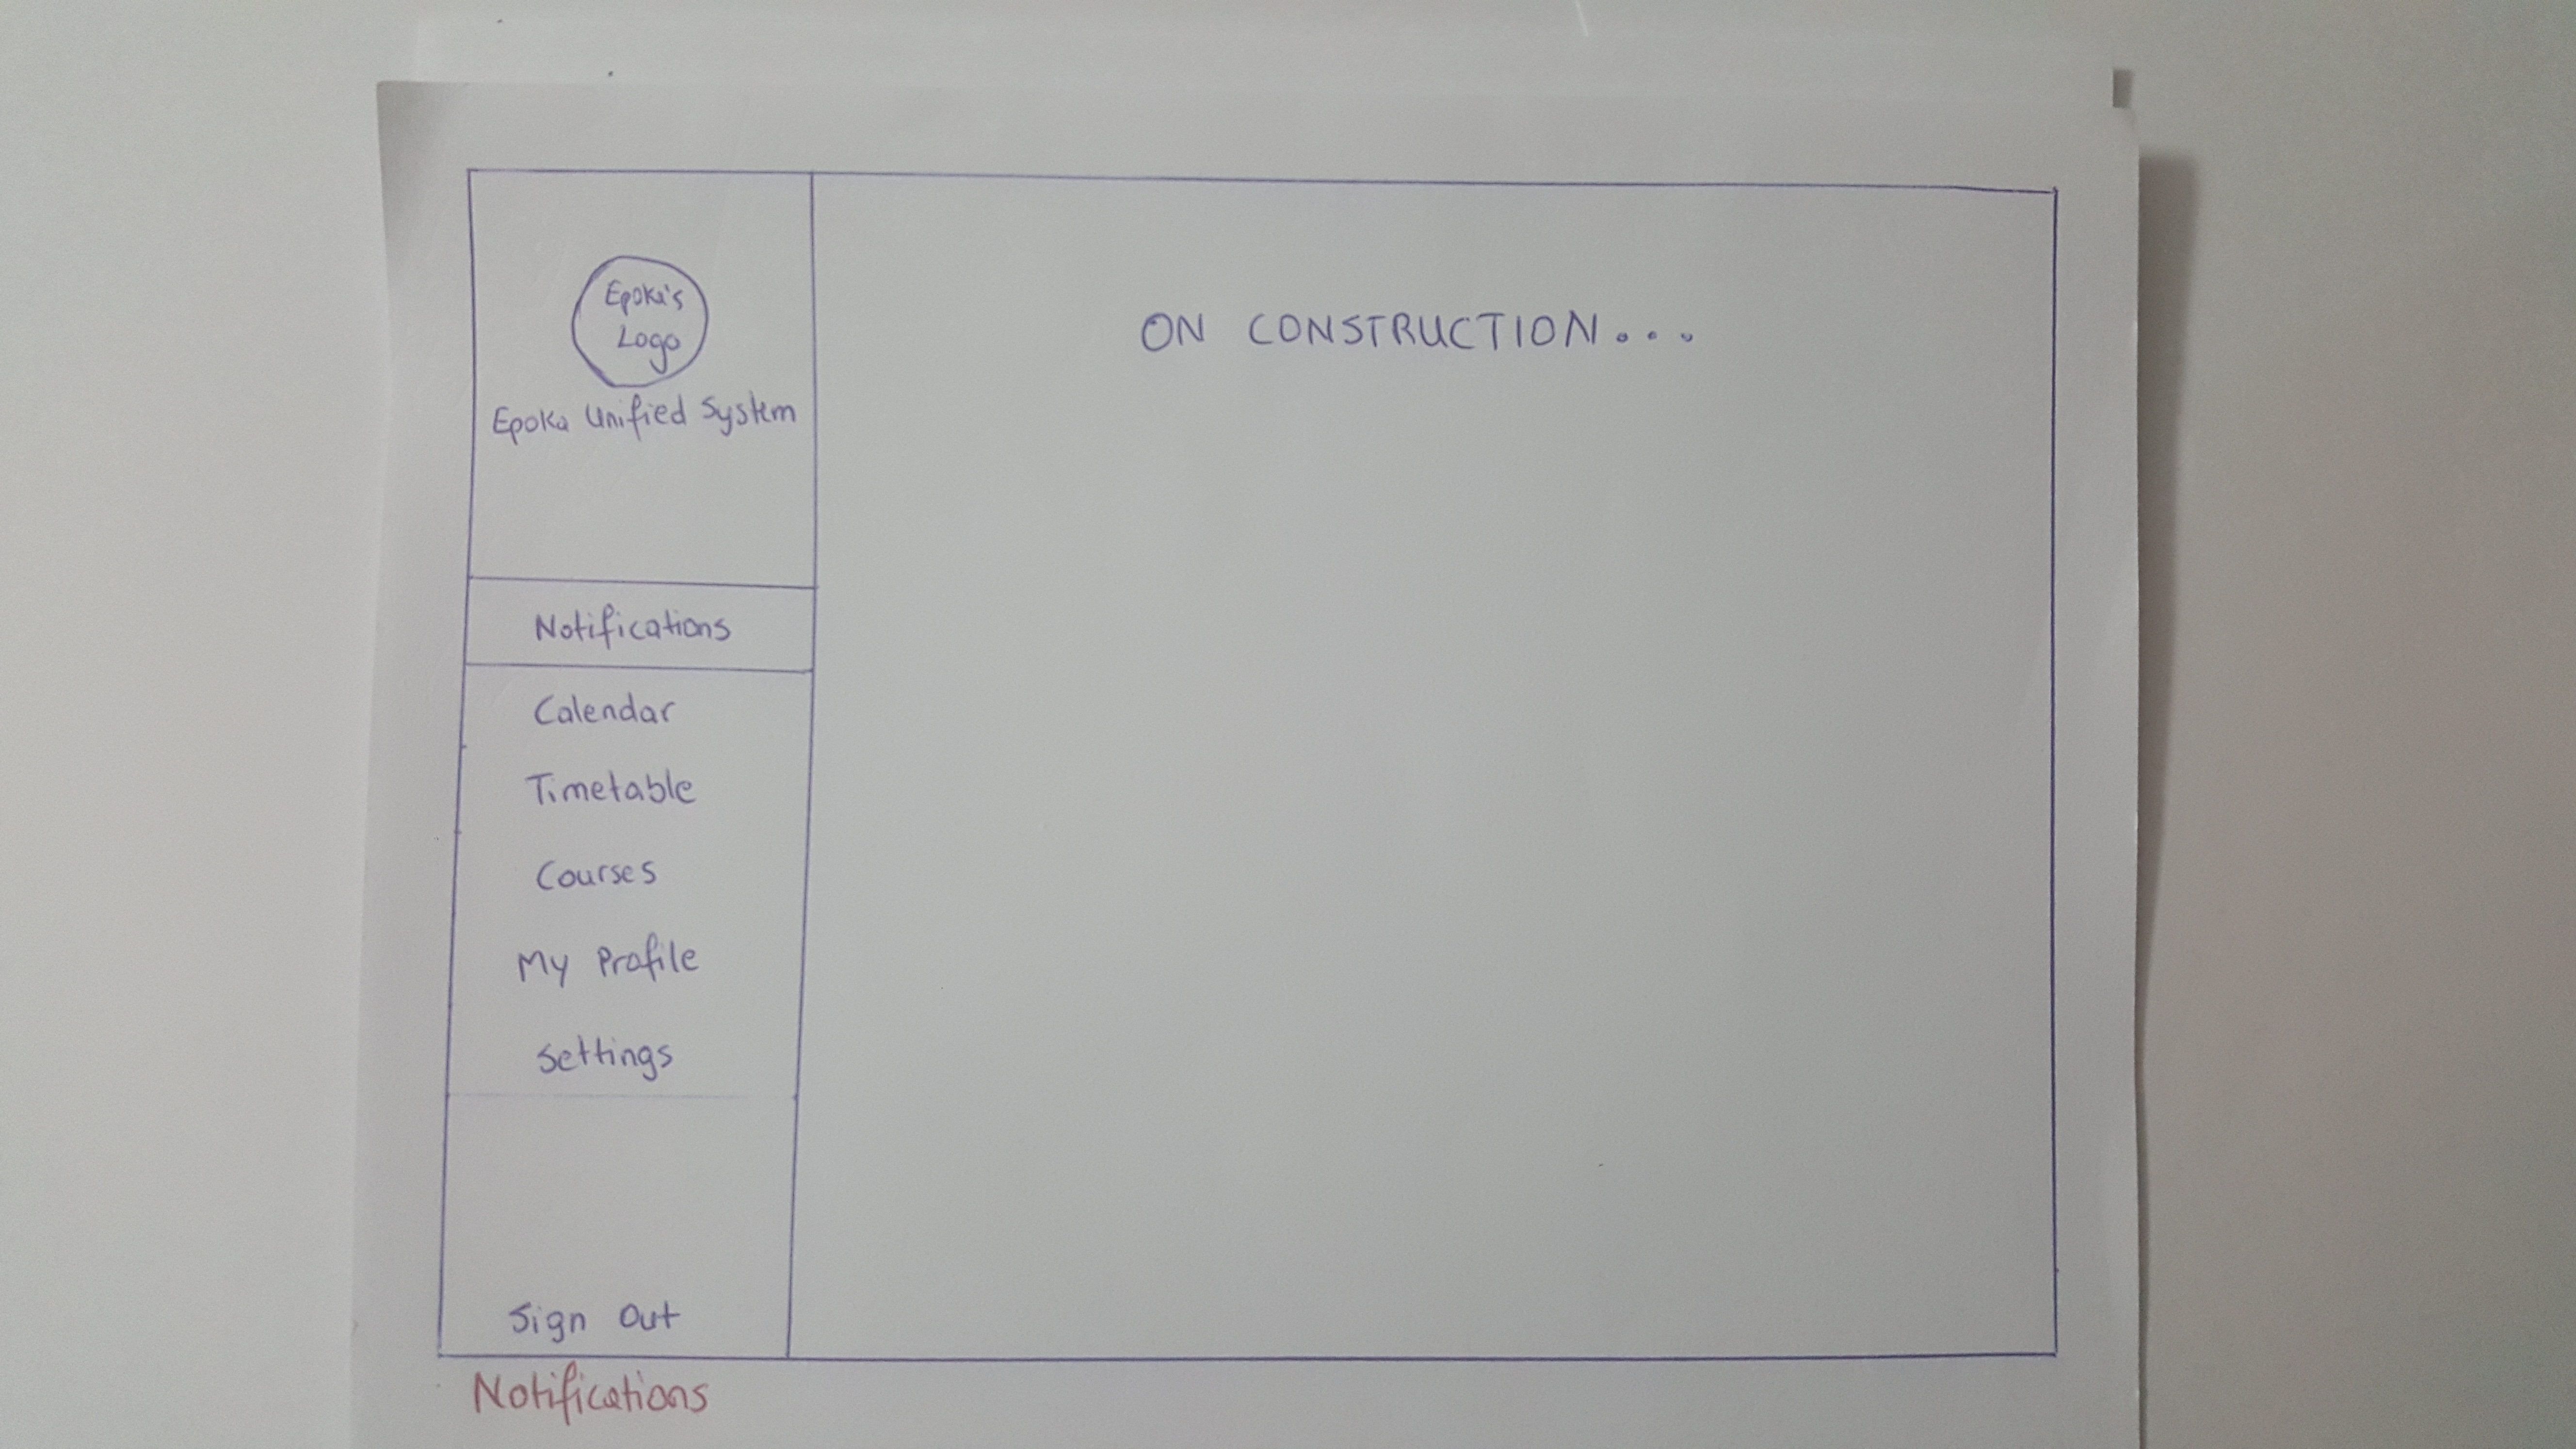 Epoka's
Logo
Epoka Unified System
Notifications
Calendar
Timetable
Courses
My Profile
Settings
Sign out
ON CONSTRUCTION...
Notifications